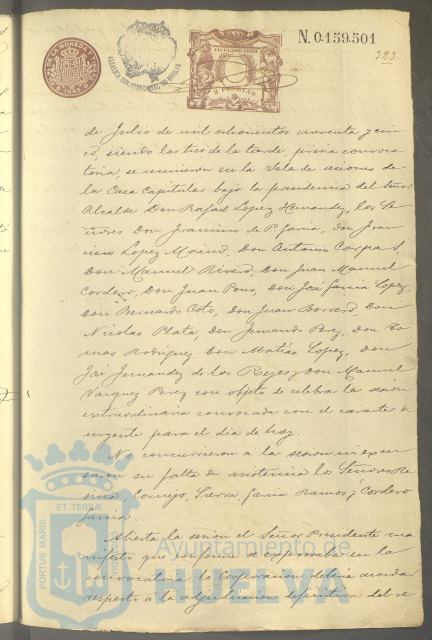 N. 0.159.501
323
ALCALDIA CONSTITUCIONAL DE HUELVA
2 PESETAS
de Julio de mil ochocientos noventa y cin
co, siendo las tres de la tarde, previa convoca
toria, se reunieron en la Sala de sesiones de
la Casa Capitular bajo la presidencia del Señor
Alcalde Don Rafael Lopez Hernandez, los Se
ñores Don Francisco de P. Garcia, Don Fran
cisco Lopez Moreno, Don Antonio Corpas,
Don Manuel Rivero, Don Juan Manuel
Cordero, Don Juan Pons, Don José Garcia Lopez,
Don Bernardo Coto, Don Juan Borrero, Don
Nicolas Plata, Don Fernando Perez, Don To
mas Rodriguez, Don Matías Lopez, Don
José Fernandez de los Reyes y Don Manuel
Vazquez Perez con objeto de celebrar la sesión
extraordinaria convocada con el caracter de
urgente para el dia de hoy.
No concurrieron á la sesion ni excu
saron su falta de asistencia los Señores
Cornejo, Sierra, Garcia Ramos y Cordero
Garcia.
Abierta la sesión el Señor Presidente ma
nifestó que conforme se expresaba en la
convocatoria la Corporacion debia acordar
respecto á la adjudicacion definitiva del se
PORTUS MARIS
ET TERRAE
Ayuntamiento de
HUELVA